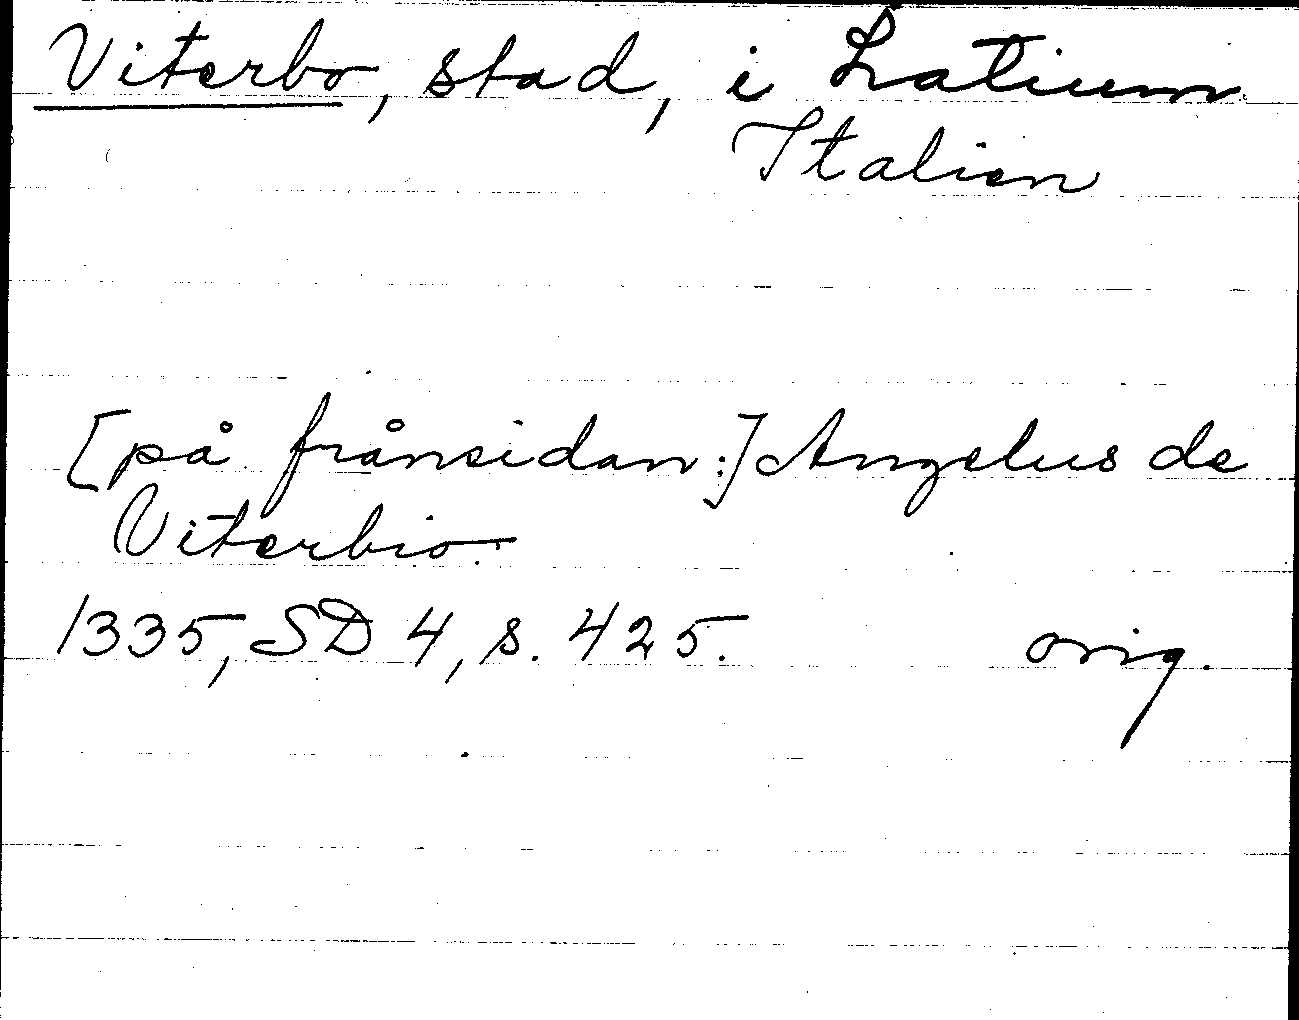 Viterbo, stad, i Latium
Italien
[på frånsidan:] Angelus de
Viterbio
1335, SD 4, s. 425. orig.